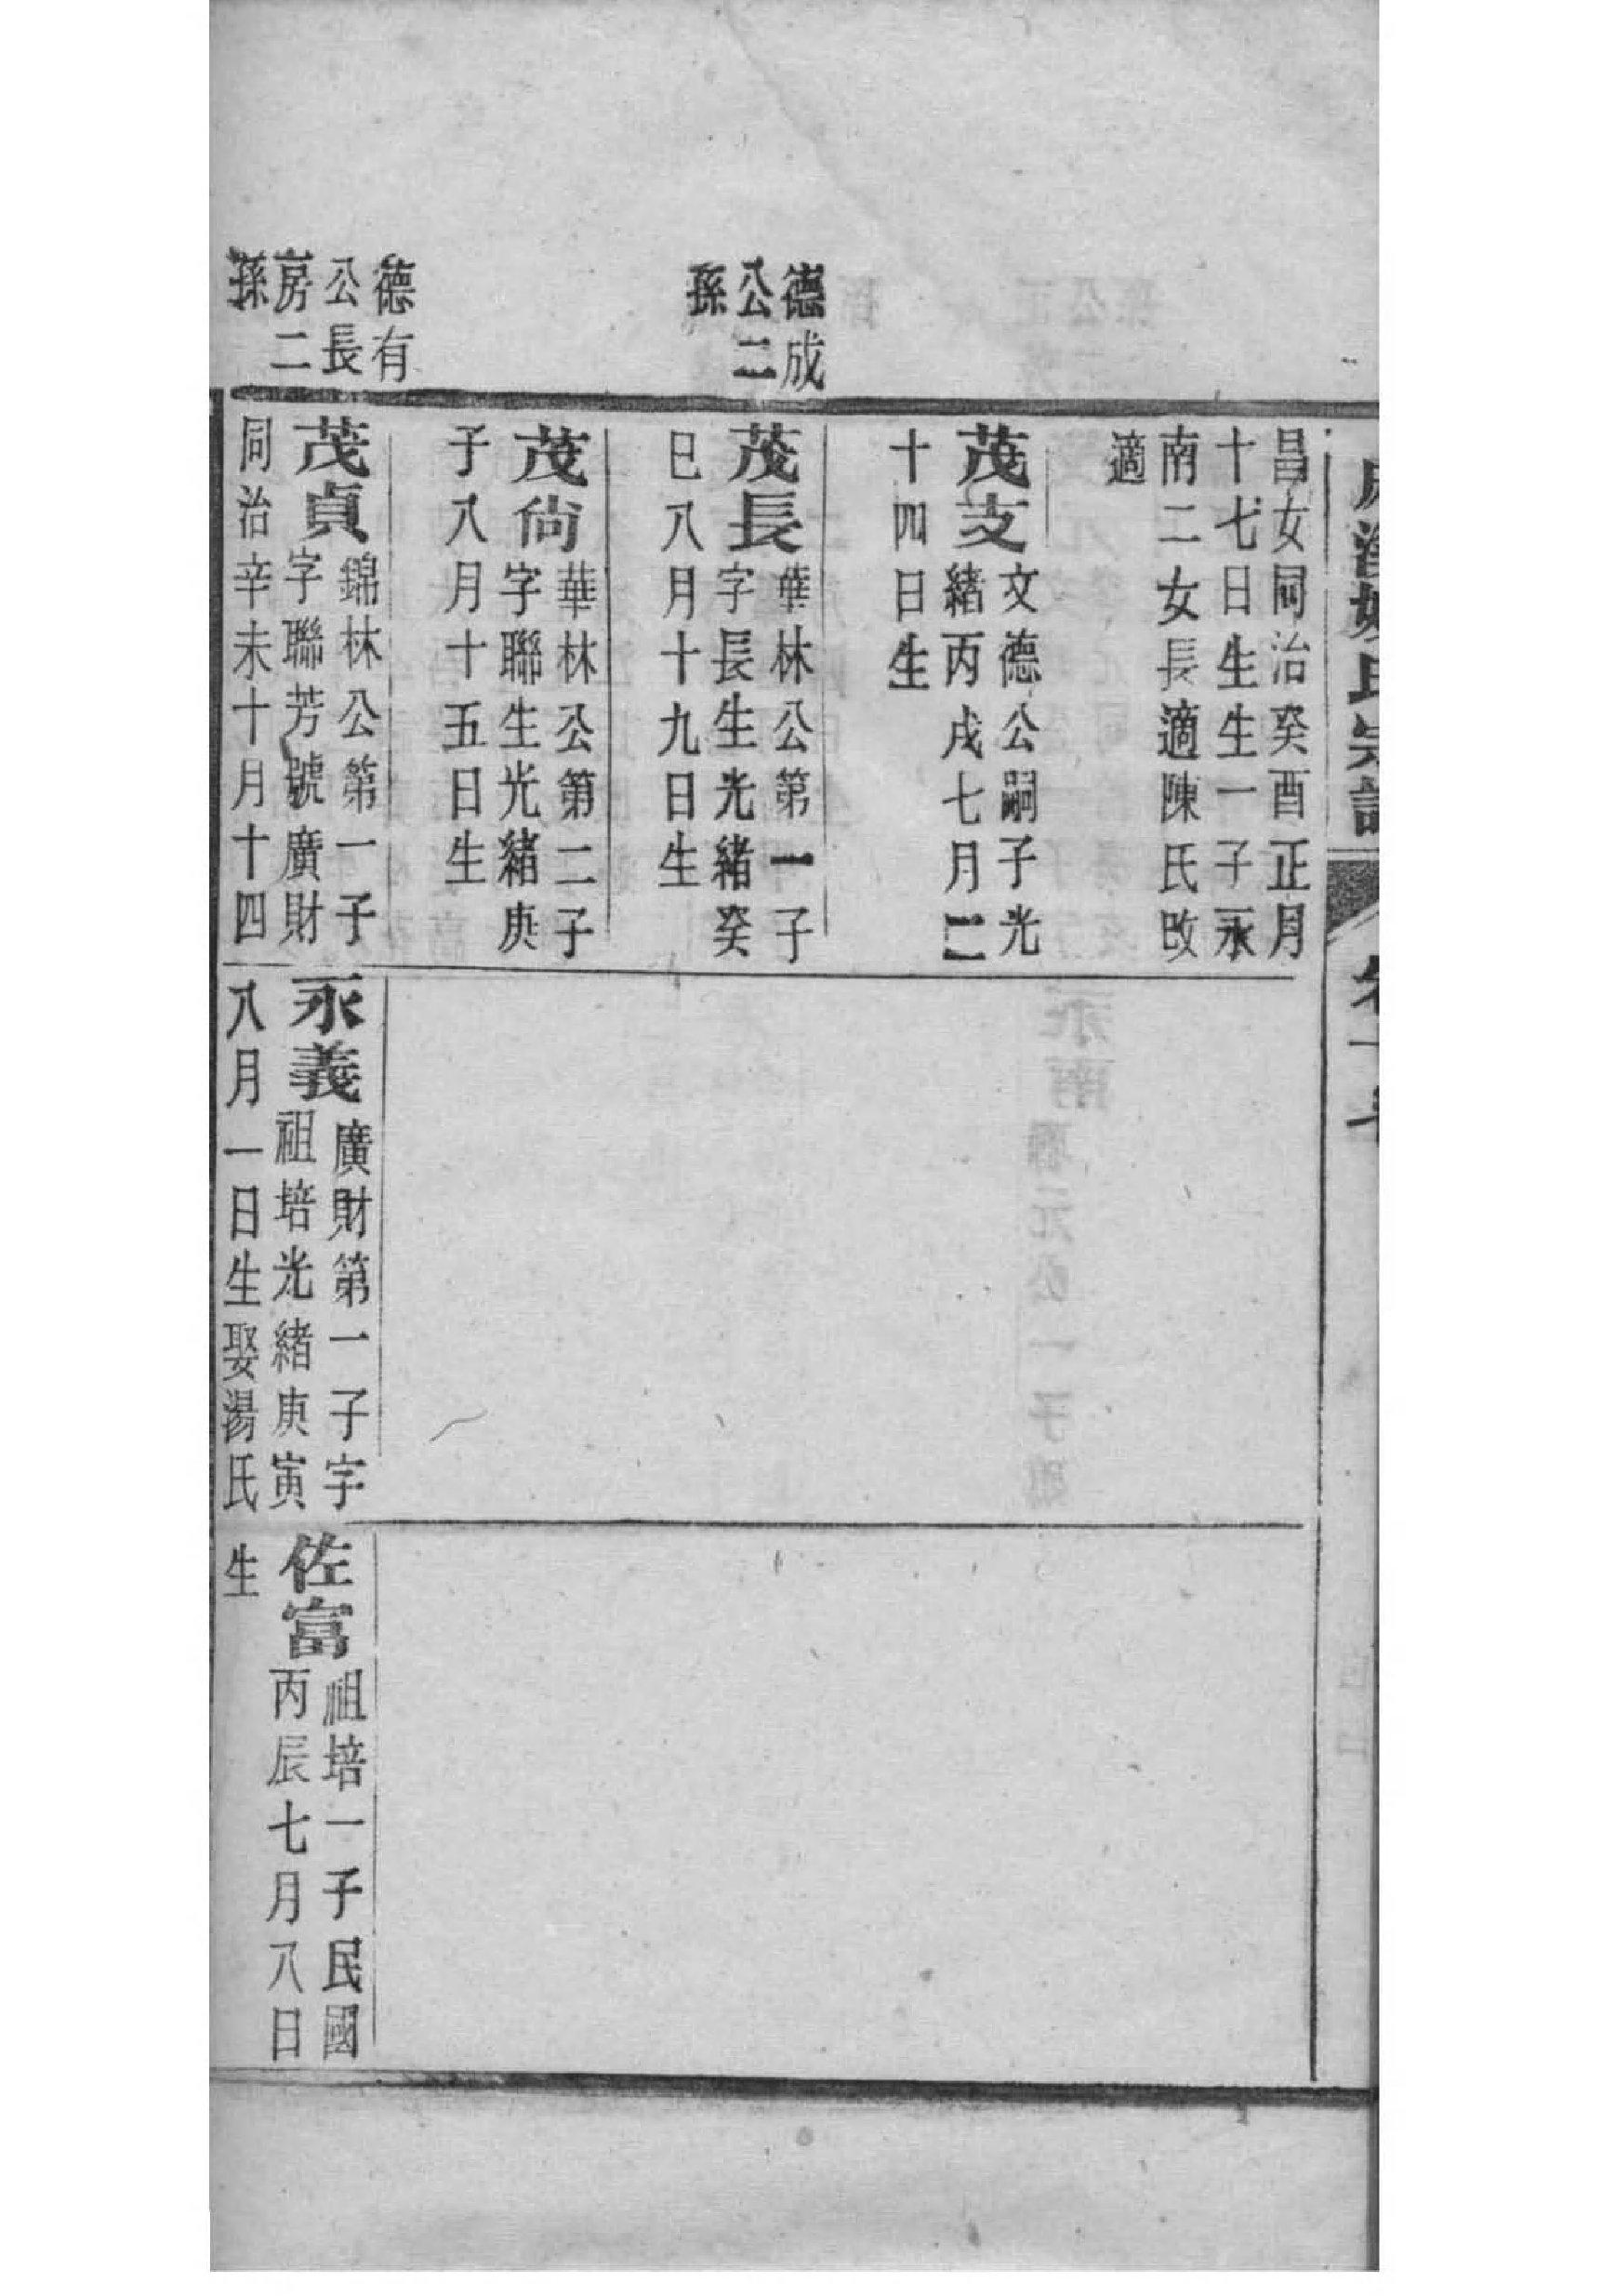 氏宗譜
昌女同治癸酉正月
十七日生生一子永
南二女長適陳氏改
適
茂支
文德公嗣子光
緒丙戌七月二
十四日生
德成
公二
孫
茂長
華林公第一子
字長生光緒癸
巳八月十九日生
茂尙
華林公第二子
字聯生光緒庚
子八月十五日生
德有
公長
房二
孫
茂貞
錦林公第一子
字聯芳號廣財
同治辛未十月十四
永義
廣財第一子字
祖培光緒庚寅
八月一日生娶湯氏
佐富
祖培一子民國
丙辰七月八日
生